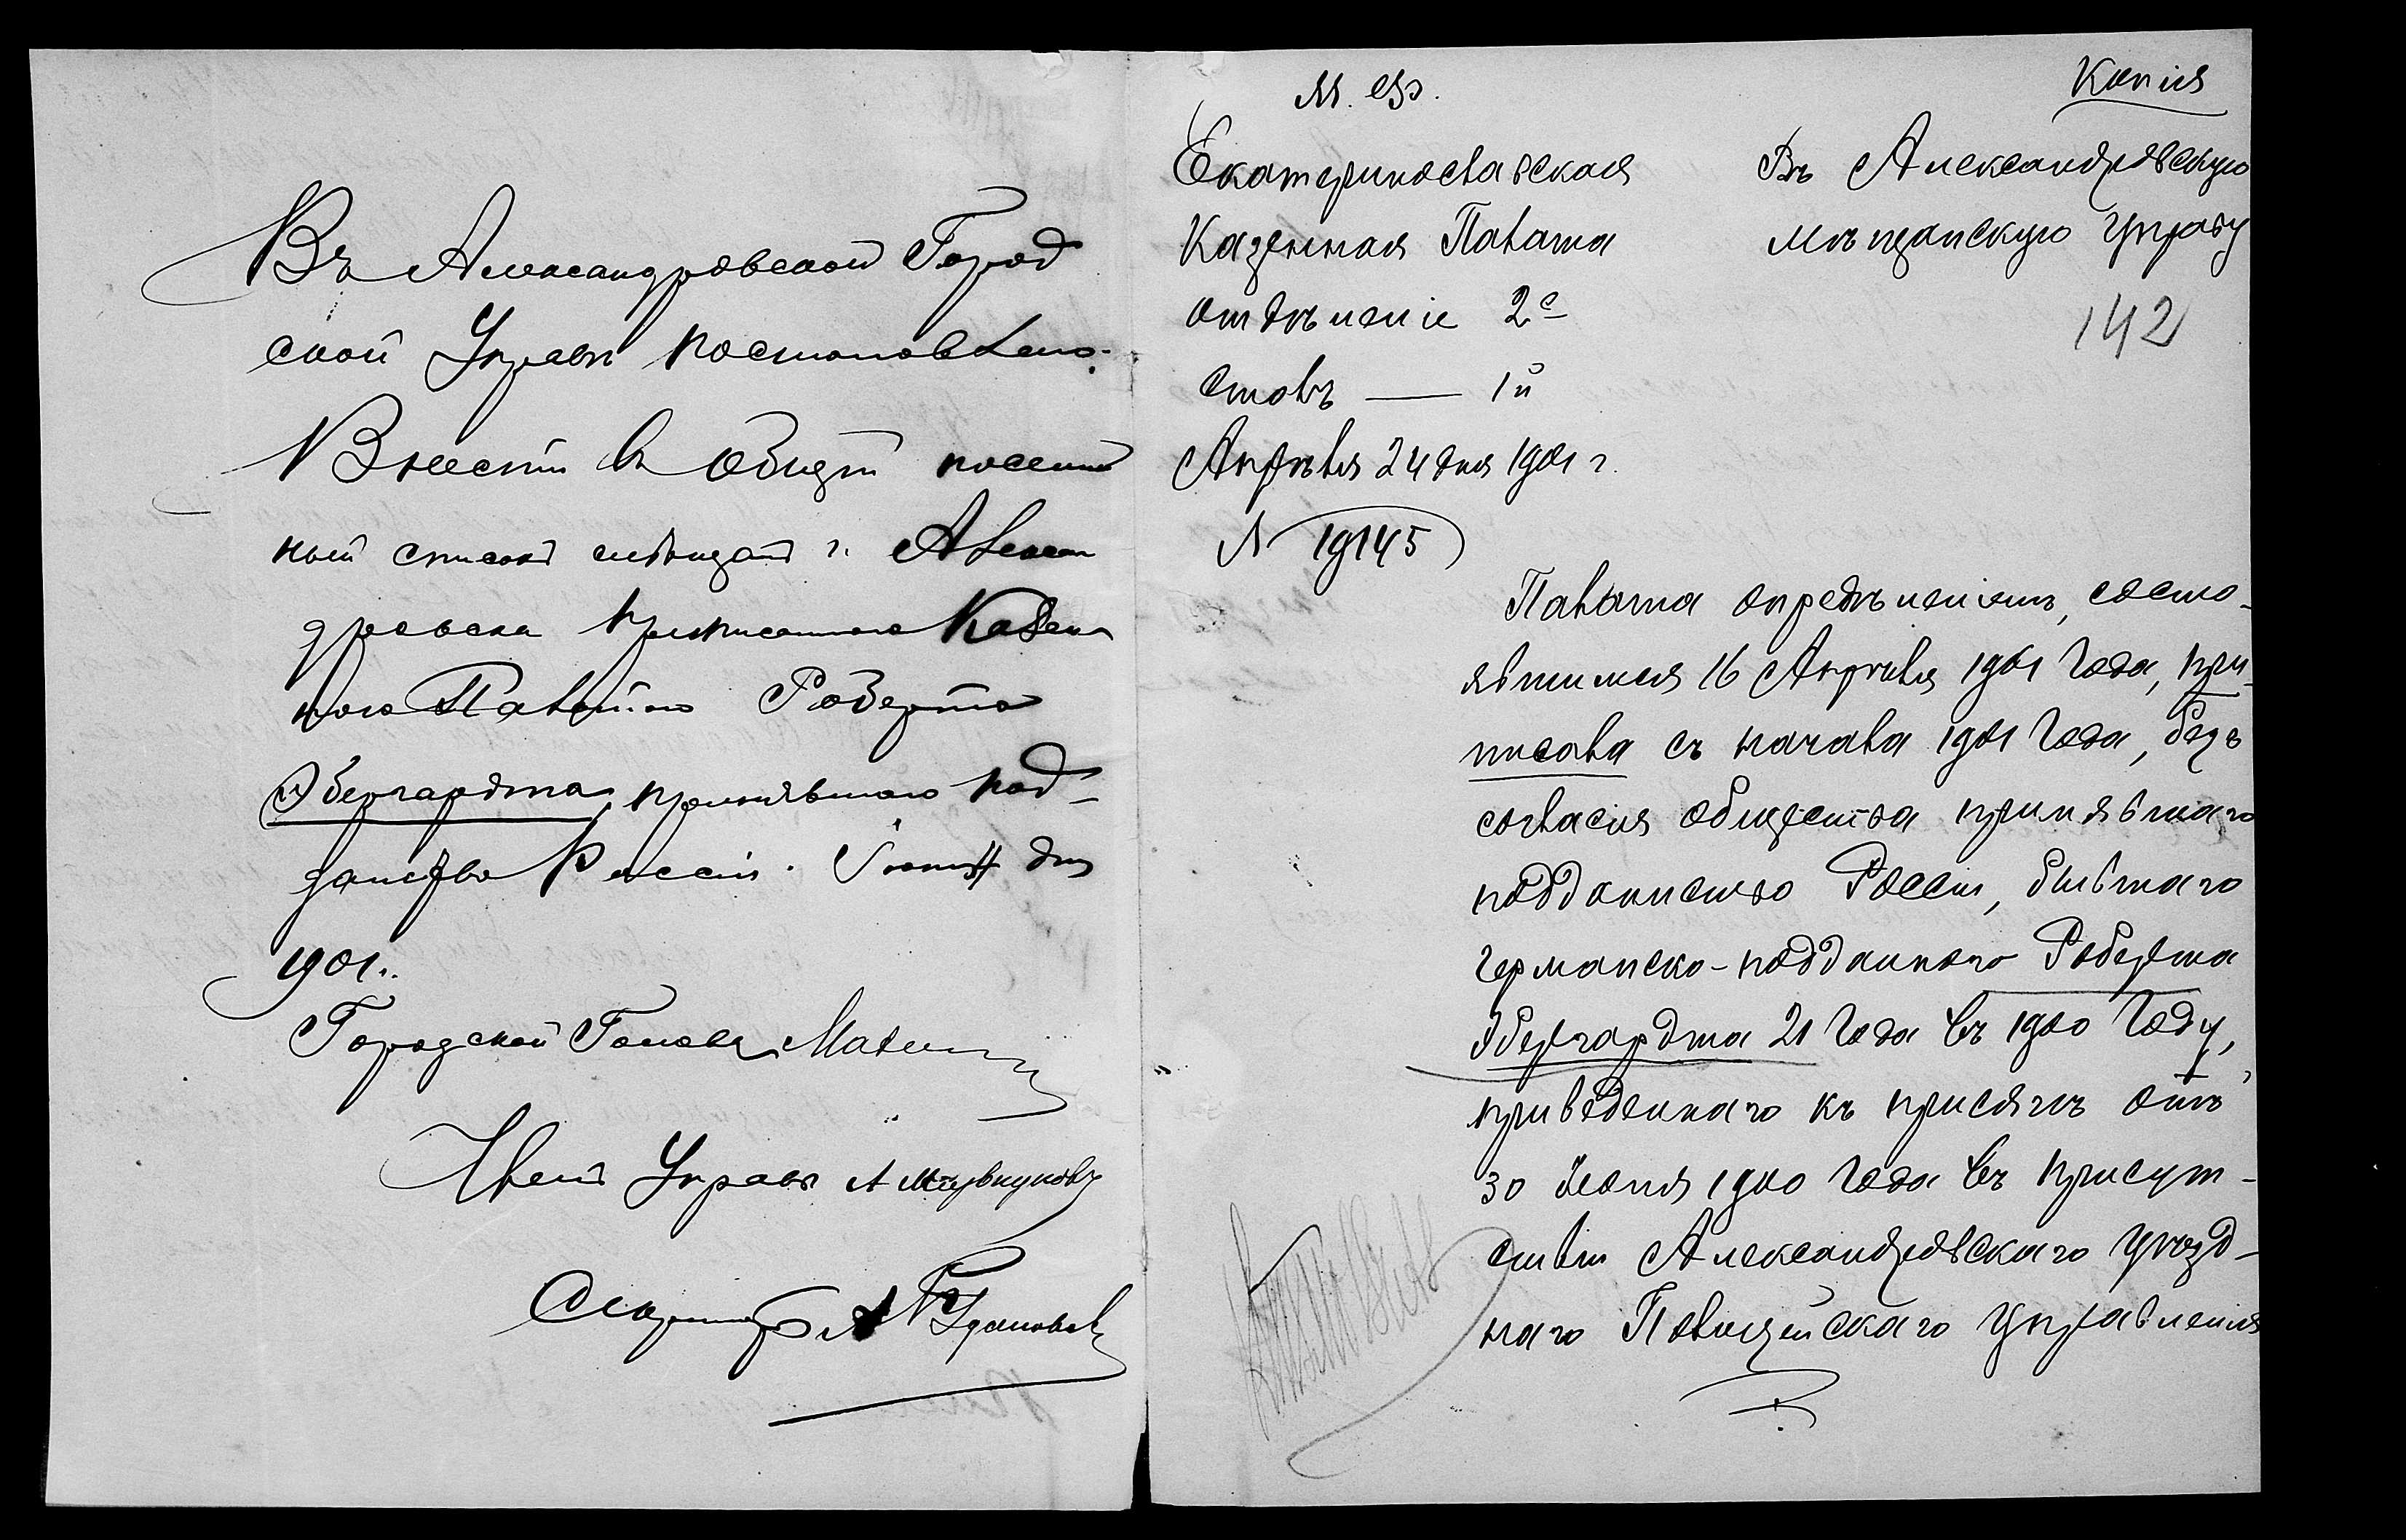 Въ Александровской Город
ской Управѣ постановлено:
Внести въ общій посемей
ный списокъ мѣщанъ г. Алексан
дровска приписаннаго Казен
ною Палатою Роберта
Эбергардта, принявшаго под-
данство Россіи. Іюня дня
1901 г.
Городской Голова
Членъ Управы А
Секретарь А
Копія
М. Ф.
Екатеринославская
Казенная Палата
отдѣленіе 2е
Столъ — 1й
Апрѣля 24 дня 1901 г.
№ 19145
Въ Александровскую
Мѣщанскую Управу
142
Палата опредѣленіемъ, состо-
явшимся 16 Апрѣля 1901 года, при-
писала съ начала 1901 года, безъ
согласія общества принявшаго
подданство Россіи, бывшаго
германско-подданнаго Роберта
Эбергардта 21 года въ 1900 году,
приведеннаго къ присягѣ
30 Іюня 1900 года въ присут-
ствіи Александровскаго уѣзд-
наго Полицейскаго Управленія